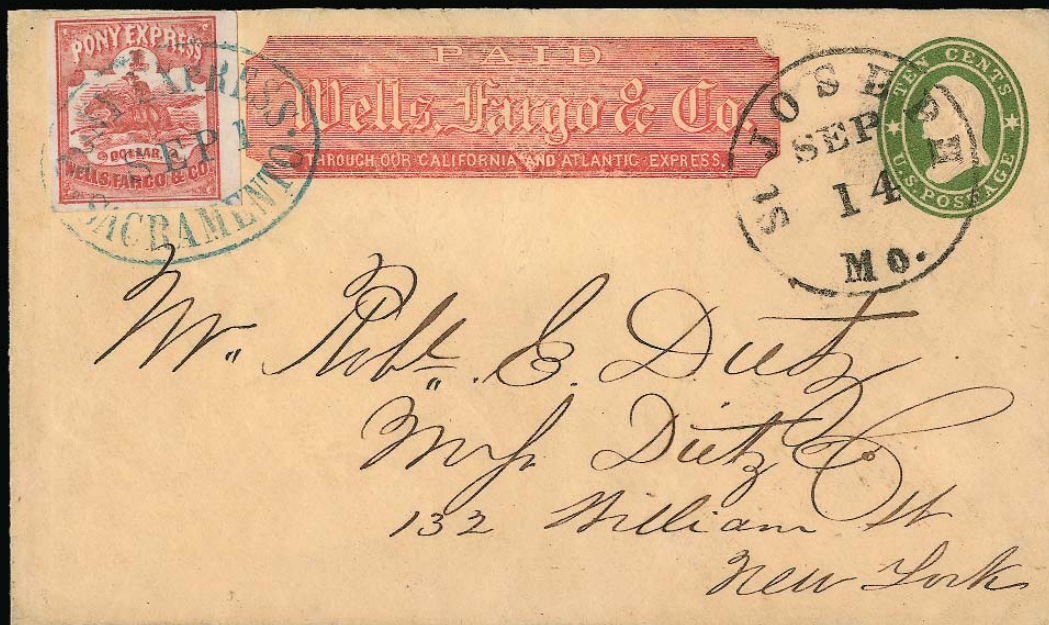 PONY EXPRESS
DOLLAR.
WELLS, FARGO & CO.
PONY EXPRESS.
SEP 1
SACRAMENTO
PAID
Wells, Fargo & Co.
THROUGH OUR CALIFORNIA AND ATLANTIC EXPRESS.
ST JOSEPH
SEP
14
Mo.
TEN CENTS
U.S. POSTAGE
Mr. Robt. E. Dietz
Messrs Dietz & Co.
132 William St
New York